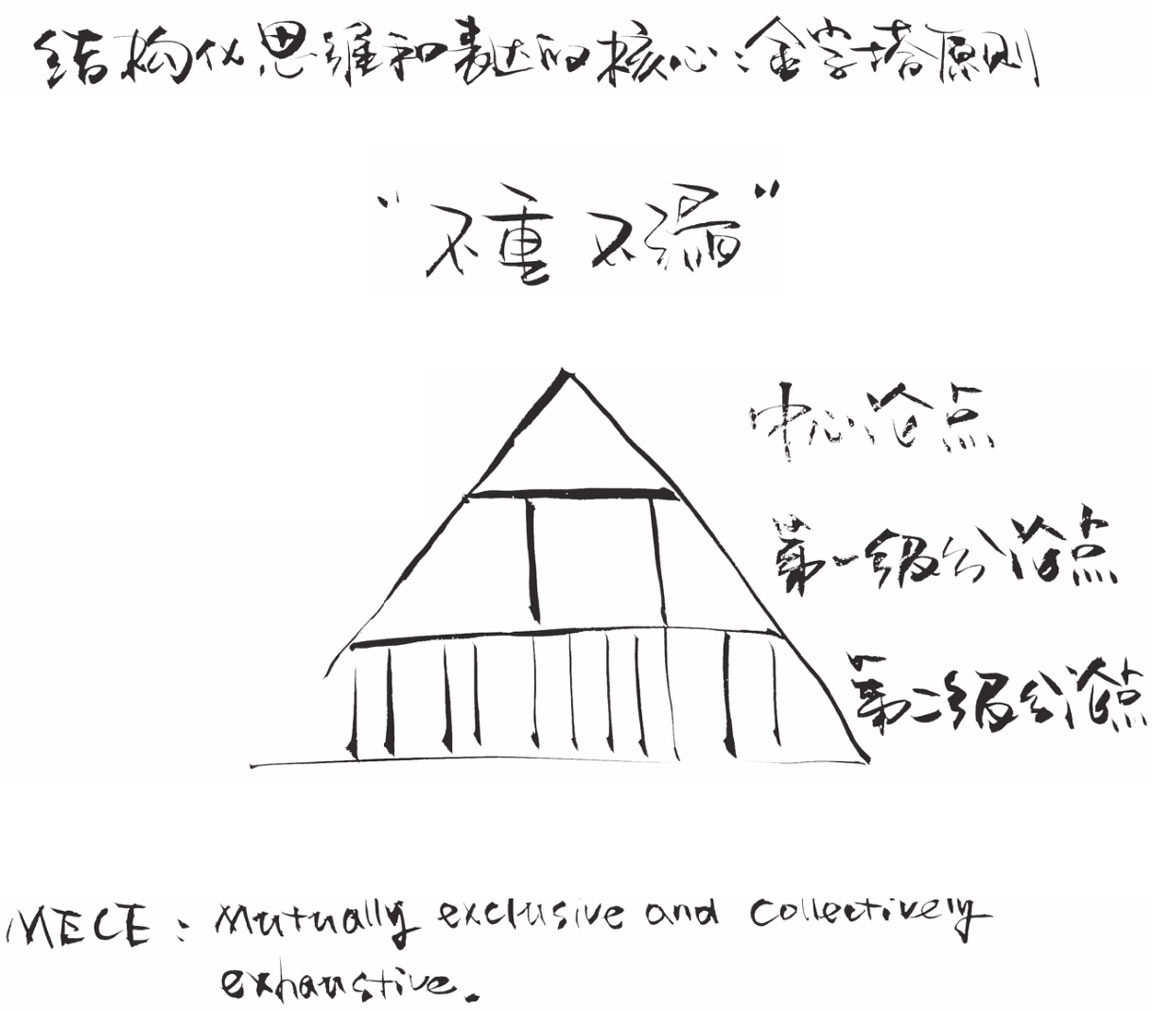 结构化思维和表达的核心:金字塔原则
“不重不漏”
中心论点
第一级分论点
第二级分论点
MECE: Mutually exclusive and collectively
exhaustive.